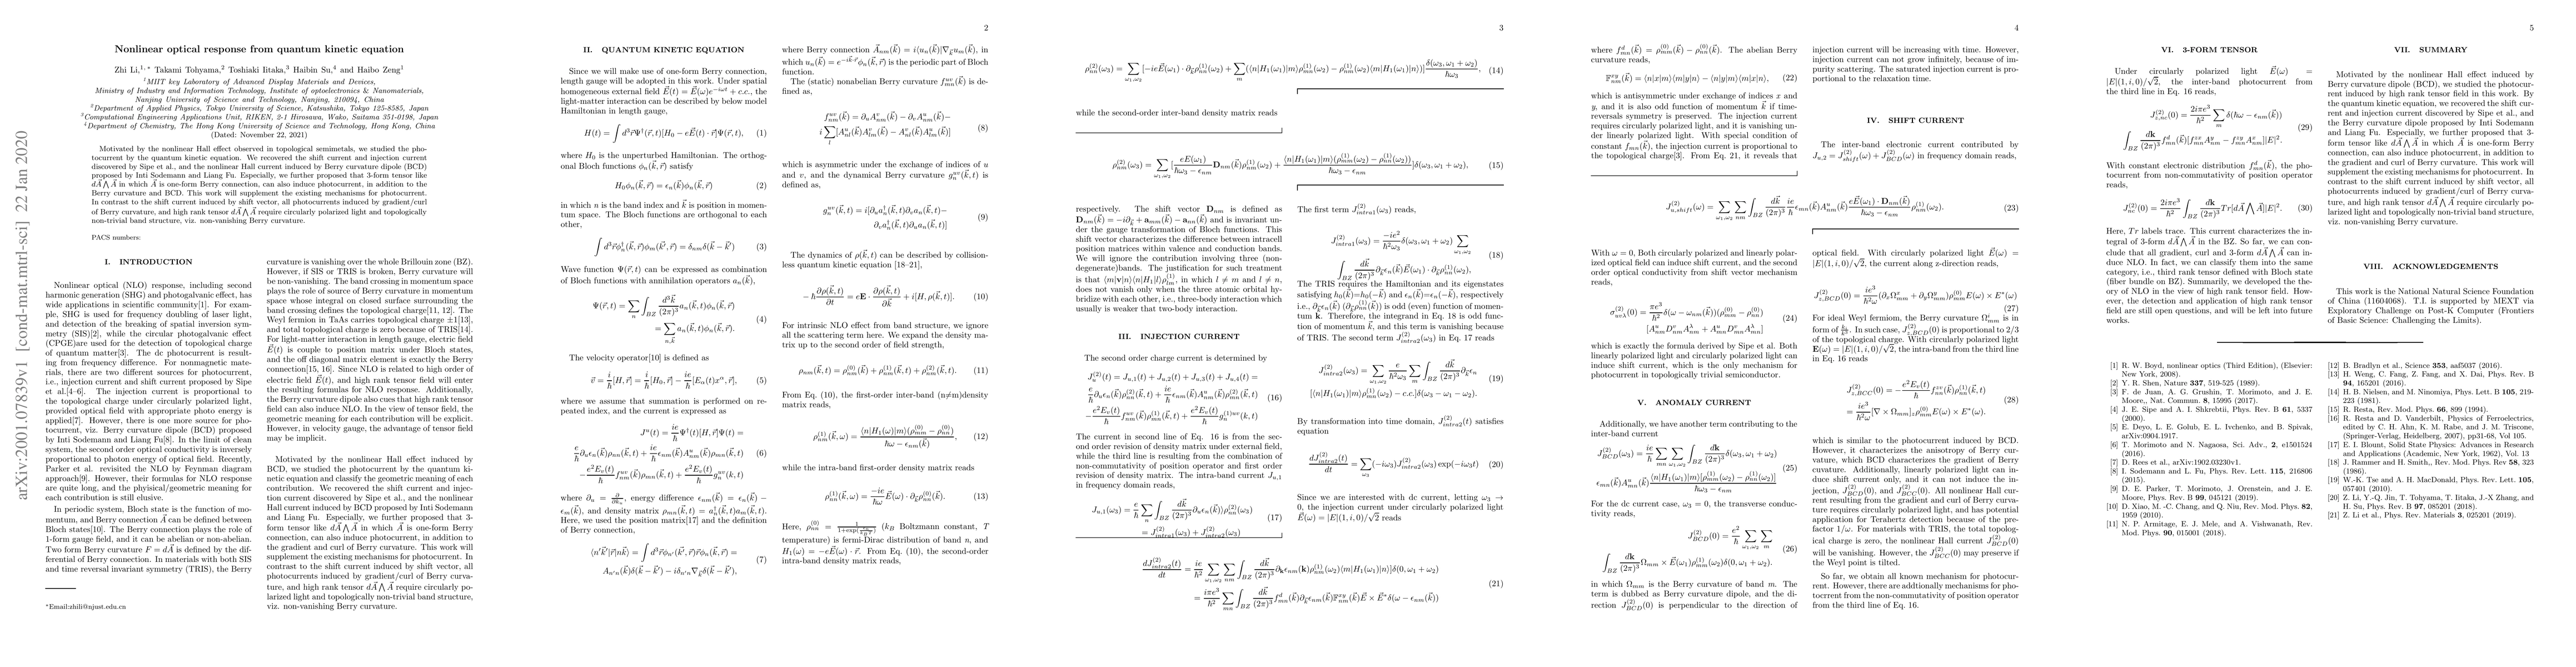 Nonlinear optical response from quantum kinetic equation
Zhi Li,1,∗ Takami Tohyama,2 Toshiaki Iitaka,3 Haibin Su,4 and Haibo Zeng1
1MIIT key Laboratory of Advanced Display Materials and Devices,
Ministry of Industry and Information Technology, Institute of optoelectronics & Nanomaterials,
Nanjing University of Science and Technology, Nanjing, 210094, China
2Department of Applied Physics, Tokyo University of Science, Katsushika, Tokyo 125-8585, Japan
3Computational Engineering Applications Unit, RIKEN, 2-1 Hirosawa, Wako, Saitama 351-0198, Japan
4Department of Chemistry, The Hong Kong University of Science and Technology, Hong Kong, China
(Dated: November 22, 2021)
Motivated by the nonlinear Hall effect observed in topological semimetals, we studied the pho-
tocurrent by the quantum kinetic equation. We recovered the shift current and injection current
discovered by Sipe et al., and the nonlinear Hall current induced by Berry curvature dipole (BCD)
proposed by Inti Sodemann and Liang Fu. Especially, we further proposed that 3-form tensor like
dA⃗⋀A⃗ in which A⃗ is one-form Berry connection, can also induce photocurrent, in addition to the
Berry curvature and BCD. This work will supplement the existing mechanisms for photocurrent.
In contrast to the shift current induced by shift vector, all photocurrents induced by gradient/curl
of Berry curvature, and high rank tensor dA⃗⋀A⃗ require circularly polarized light and topologically
non-trivial band structure, viz. non-vanishing Berry curvature.
PACS numbers:
arXiv:2001.07839v1 [cond-mat.mtrl-sci] 22 Jan 2020
I. INTRODUCTION
Nonlinear optical (NLO) response, including second
harmonic generation (SHG) and photogalvanic effect, has
wide applications in scientific community[1]. For exam-
ple, SHG is used for frequency doubling of laser light,
and detection of the breaking of spatial inversion sym-
metry (SIS)[2], while the circular photogalvanic effect
(CPGE)are used for the detection of topological charge
of quantum matter[3]. The dc photocurrent is result-
ing from frequency difference. For nonmagnetic mate-
rials, there are two different sources for photocurrent,
i.e., injection current and shift current proposed by Sipe
et al.[4–6]. The injection current is proportional to
the topological charge under circularly polarized light,
provided optical field with appropriate photo energy is
applied[7]. However, there is one more source for pho-
tocurrent, viz. Berry curvature dipole (BCD) proposed
by Inti Sodemann and Liang Fu[8]. In the limit of clean
system, the second order optical conductivity is inversely
proportional to photon energy of optical field. Recently,
Parker et al. revisited the NLO by Feynman diagram
approach[9]. However, their formulas for NLO response
are quite long, and the phyisical/geometric meaning for
each contribution is still elusive.
In periodic system, Bloch state is the function of mo-
mentum, and Berry connection A⃗ can be defined between
Bloch states[10]. The Berry connection plays the role of
1-form gauge field, and it can be abelian or non-abelian.
Two form Berry curvature F = dA⃗ is defined by the dif-
ferential of Berry connection. In materials with both SIS
and time reversal invariant symmetry (TRIS), the Berry
∗Email:zhili@njust.edu.cn
curvature is vanishing over the whole Brillouin zone (BZ).
However, if SIS or TRIS is broken, Berry curvature will
be non-vanishing. The band crossing in momentum space
plays the role of source of Berry curvature in momentum
space whose integral on closed surface surrounding the
band crossing defines the topological charge[11, 12]. The
Weyl fermion in TaAs carries topological charge ±1[13],
and total topological charge is zero because of TRIS[14].
For light-matter interaction in length gauge, electric field
E⃗(t) is couple to position matrix under Bloch states,
and the off diagonal matrix element is exactly the Berry
connection[15, 16]. Since NLO is related to high order of
electric field E⃗(t), and high rank tensor field will enter
the resulting formulas for NLO response. Additionally,
the Berry curvature dipole also cues that high rank tensor
field can also induce NLO. In the view of tensor field, the
geometric meaning for each contribution will be explicit.
However, in velocity gauge, the advantage of tensor field
may be implicit.
Motivated by the nonlinear Hall effect induced by
BCD, we studied the photocurrent by the quantum ki-
netic equation and classify the geometric meaning of each
contribution. We recovered the shift current and injec-
tion current discovered by Sipe et al., and the nonlinear
Hall current induced by BCD proposed by Inti Sodemann
and Liang Fu. Especially, we further proposed that 3-
form tensor like dA⃗⋀A⃗ in which A⃗ is one-form Berry
connection, can also induce photocurrent, in addition to
the gradient and curl of Berry curvature. This work will
supplement the existing mechanisms for photocurrent. In
contrast to the shift current induced by shift vector, all
photocurrents induced by gradient/curl of Berry curva-
ture, and high rank tensor dA⃗⋀A⃗ require circularly po-
larized light and topologically non-trivial band structure,
viz. non-vanishing Berry curvature.
2
II. QUANTUM KINETIC EQUATION
Since we will make use of one-form Berry connection,
length gauge will be adopted in this work. Under spatial
homogeneous external field E⃗(t) = E⃗(ω)e^{−iωt} + c.c., the
light-matter interaction can be described by below model
Hamiltonian in length gauge,
H(t) = ∫ d³r⃗Ψ†(r⃗,t)[H0 − eE⃗(t) · r⃗]Ψ(r⃗,t), (1)
where H0 is the unperturbed Hamiltonian. The orthog-
onal Bloch functions ϕn(k⃗,r⃗) satisfy
H0ϕn(k⃗,r⃗) = ϵn(k⃗)ϕn(k⃗,r⃗) (2)
in which n is the band index and k⃗ is position in momen-
tum space. The Bloch functions are orthogonal to each
other,
∫ d³r⃗ϕ†n(k⃗,r⃗)ϕm(k⃗′,r⃗) = δnmδ(k⃗ − k⃗′) (3)
Wave function Ψ(r⃗,t) can be expressed as combination
of Bloch functions with annihilation operators an(k⃗,t),
Ψ(r⃗,t) = ∑n ∫BZ d³k⃗/(2π)³ an(k⃗,t)ϕn(k⃗,r⃗)
= ∑n,k⃗ an(k⃗,t)ϕn(k⃗,r⃗). (4)
The velocity operator[10] is defined as
v⃗ = i/ħ[H,r⃗] = i/ħ[H0,r⃗] − ie/ħ[Eα(t)xα,r⃗], (5)
where we assume that summation is performed on re-
peated index, and the current is expressed as
Ju(t) = ie/ħ Ψ†(t)[H,r⃗]Ψ(t) =
e/ħ ∂uϵn(k⃗)ρnn(k⃗,t) + ie/ħ ϵnm(k⃗)Aunm(k⃗)ρmn(k⃗,t) (6)
−e²Ev(t)/ħ fuvnm(k⃗)ρmn(k⃗,t) + e²Ev(t)/ħ guvn(k,t)
where ∂u = ∂/∂ku, energy difference ϵnm(k⃗) = ϵn(k⃗) −
ϵm(k⃗), and density matrix ρmn(k⃗,t) = a†n(k⃗,t)am(k⃗,t).
Here, we used the position matrix[17] and the definition
of Berry connection,
⟨n′k⃗′|r⃗|nk⃗⟩ = ∫ d³r⃗ϕn′(k⃗′,r⃗)r⃗ϕn(k⃗,r⃗) =
An′n(k⃗)δ(k⃗ − k⃗′) − iδn′n∇k⃗δ(k⃗ − k⃗′), (7)
where Berry connection A⃗nm(k⃗) = i⟨un(k⃗)|∇k⃗um(k⃗), in
which un(k⃗) = e^{−ik⃗·r⃗}ϕn(k⃗,r⃗) is the periodic part of Bloch
function.
The (static) nonabelian Berry curvature fuvnm(k⃗) is de-
fined as,
fuvnm(k⃗) = ∂uAvnm(k⃗) − ∂vAunm(k⃗)−
i∑l[Aunl(k⃗)Avlm(k⃗) − Avnl(k⃗)Aulm(k⃗)] (8)
which is asymmetric under the exchange of indices of u
and v, and the dynamical Berry curvature guvn(k⃗,t) is
defined as,
guvn(k⃗,t) = i[∂ua†n(k⃗,t)∂van(k⃗,t)−
∂va†n(k⃗,t)∂uan(k⃗,t)] (9)
The dynamics of ρ(k⃗,t) can be described by collision-
less quantum kinetic equation [18–21],
− ħ∂ρ(k⃗,t)/∂t = eE · ∂ρ(k⃗,t)/∂k⃗ + i[H, ρ(k⃗,t)]. (10)
For intrinsic NLO effect from band structure, we ignore
all the scattering term here. We expand the density ma-
trix up to the second order of field strength,
ρnm(k⃗,t) = ρ(0)nm(k⃗) + ρ(1)nm(k⃗,t) + ρ(2)nm(k⃗,t). (11)
From Eq. (10), the first-order inter-band (n≠m)density
matrix reads,
ρ(1)nm(k⃗,ω) = ⟨n|H1(ω)|m⟩(ρ(0)mm − ρ(0)nn)/(ħω − ϵnm(k⃗)), (12)
while the intra-band first-order density matrix reads
ρ(1)nn(k⃗,ω) = −ie/ħω E⃗(ω) · ∂k⃗ρ(0)nn(k⃗). (13)
Here, ρ(0)nn = 1/(1+exp(ϵn/kBT)) (kB Boltzmann constant, T
temperature) is fermi-Dirac distribution of band n, and
H1(ω) = −eE⃗(ω) · r⃗. From Eq. (10), the second-order
intra-band density matrix reads,
3
ρ(2)nn(ω3) = ∑ω1,ω2[−ieE⃗(ω1) · ∂k⃗ρ(1)nn(ω2) + ∑m(⟨n|H1(ω1)|m⟩ρ(1)mn(ω2) − ρ(1)nm(ω2)⟨m|H1(ω1)|n⟩)]δ(ω3, ω1 + ω2)/ħω3, (14)
while the second-order inter-band density matrix reads
ρ(2)nm(ω3) = ∑ω1,ω2[eE(ω1)/(ħω3 − ϵnm) Dnm(k⃗)ρ(1)nm(ω2) + ⟨n|H1(ω1)|m⟩(ρ(1)mm(ω2) − ρ(1)nn(ω2))/(ħω3 − ϵnm)]δ(ω3, ω1 + ω2), (15)
respectively. The shift vector Dnm is defined as
Dnm(k⃗) = −i∂k⃗ + amm(k⃗) − ann(k⃗) and is invariant un-
der the gauge transformation of Bloch functions. This
shift vector characterizes the difference between intracell
position matrices within valence and conduction bands.
We will ignore the contribution involving three (non-
degenerate)bands. The justification for such treatment
is that ⟨m|v|n⟩⟨n|H1|l⟩ρ(1)lm, in which l ≠ m and l ≠ n,
does not vanish only when the three atomic orbital hy-
bridize with each other, i.e., three-body interaction which
usually is weaker that two-body interaction.
III. INJECTION CURRENT
The second order charge current is determined by
J(2)u(t) = Ju,1(t) + Ju,2(t) + Ju,3(t) + Ju,4(t) =
e/ħ ∂uϵn(k⃗)ρ(2)nn(k⃗,t) + ie/ħ ϵnm(k⃗)Aunm(k⃗)ρ(2)mn(k⃗,t) (16)
−e²Ev(t)/ħ fuvnm(k⃗)ρ(1)mn(k⃗,t) + e²Ev(t)/ħ g(1)uvn(k⃗,t)
The current in second line of Eq. 16 is from the sec-
ond order revision of density matrix under external field,
while the third line is resulting from the combination of
non-commutativity of position operator and first order
revision of density matrix. The intra-band current Ju,1
in frequency domain reads,
Ju,1(ω) = e/ħ ∑n ∫BZ dk⃗/(2π)³ ∂uϵn(k⃗)⟩ρ(2)nn(ω3)
= J(2)intra1(ω3) + J(2)intra2(ω3) (17)
The first term J(2)intra1(ω3) reads,
J(2)intra1(ω3) = −ie²/ħ²ω3 δ(ω3, ω1 + ω2)∑ω1,ω2
∫BZ dk⃗/(2π)³ ∂k⃗ϵn(k⃗)E⃗(ω1) · ∂k⃗ρ(1)nn(ω2), (18)
The TRIS requires the Hamiltonian and its eigenstates
satisfying h0(k⃗)=h0(−k⃗) and ϵn(k⃗)=ϵn(−k⃗), respectively
i.e., ∂k⃗ϵn(k⃗) (∂k⃗ρ(1)nn(k⃗)) is odd (even) function of momen-
tum k. Therefore, the integrand in Eq. 18 is odd func-
tion of momentum k⃗, and this term is vanishing because
of TRIS. The second term J(2)intra2(ω3) in Eq. 17 reads
J(2)intra2(ω3) = ∑ω1,ω2 e/ħ²ω3 ∑m ∫BZ dk⃗/(2π)³ ∂k⃗ϵn
[⟨n|H1(ω1)|m⟩ρ(1)mn(ω2) − c.c.]δ(ω3 − ω1 − ω2). (19)
By transformation into time domain, J(2)intra2(t) satisfies
equation
dJ(2)intra2(t)/dt = ∑ω3(−iω3)J(2)intra2(ω3) exp(−iω3t) (20)
Since we are interested with dc current, letting ω3 →
0, the injection current under circularly polarized light
E⃗(ω) = |E|(1, i, 0)/√2 reads
dJ(2)intra2(t)/dt = ie/ħ² ∑ω1,ω2 ∑nm ∫BZ dk⃗/(2π)³ ∂kϵnm(k)ρ(1)nm(ω2)⟨m|H1(ω1)|n⟩]δ(0, ω1 + ω2)
= iπe³/ħ² ∑mn ∫BZ dk⃗/(2π)³ fdmn(k⃗)∂k⃗ϵnm(k⃗)𝔽xynm(k⃗)E⃗ × E⃗*δ(ω − ϵnm(k⃗)) (21)
4
where fdmn(k⃗) = ρ(0)mm(k⃗) − ρ(0)nn(k⃗). The abelian Berry
curvature reads,
𝔽xynm(k⃗) = ⟨n|x|m⟩⟨m|y|n⟩ − ⟨n|y|m⟩⟨m|x|n⟩, (22)
which is antisymmetric under exchange of indices x and
y, and it is also odd function of momentum k⃗ if time-
reversals symmetry is preserved. The injection current
requires circularly polarized light, and it is vanishing un-
der linearly polarized light. With special condition of
constant fdmn(k⃗), the injection current is proportional to
the topological charge[3]. From Eq. 21, it reveals that
injection current will be increasing with time. However,
injection current can not grow infinitely, because of im-
purity scattering. The saturated injection current is pro-
portional to the relaxation time.
IV. SHIFT CURRENT
The inter-band electronic current contributed by
Ju,2 = J(2)shift(ω) + J(2)BCD(ω) in frequency domain reads,
J(2)u,shift(ω) = ∑ω1,ω2 ∑mn ∫BZ dk⃗/(2π)³ ie/ħ ϵmn(k⃗)Aumn(k⃗) eE⃗(ω1) · Dnm(k⃗)/(ħω3 − ϵnm) ρ(1)nm(ω2). (23)
With ω = 0, Both circularly polarized and linearly polar-
ized optical field can induce shift current, and the second
order optical conductivity from shift vector mechanism
reads,
σ(2)uvλ(0) = πe³/ħ² δ(ω − ωnm(k⃗))(ρ(0)mm − ρ(0)nn)
[AumnDvnmAλnm + AumnDvnmAλmn] (24)
which is exactly the formula derived by Sipe et al. Both
linearly polarized light and circularly polarized light can
induce shift current, which is the only mechanism for
photocurrent in topologically trivial semiconductor.
V. ANOMALY CURRENT
Additionally, we have another term contributing to the
inter-band current
J(2)BCD(ω3) = ie/ħ ∑mn ∑ω1,ω2 ∫BZ dk/(2π)³ δ(ω3, ω1 + ω2)
ϵmn(k⃗)Aumn(k⃗)⟨n|H1(ω1)|m⟩[ρ(1)mm(ω2) − ρ(1)nn(ω2)]/(ħω3 − ϵnm) (25)
For the dc current case, ω3 = 0, the transverse conduc-
tivity reads,
J(2)BCD(0) = e²/ħ ∑ω1,ω2 ∑m
∫BZ dk/(2π)³ Ωmm × E⃗(ω1)ρ(1)mm(ω2)δ(0, ω1 + ω2). (26)
in which Ωmm is the Berry curvature of band m. The
term is dubbed as Berry curvature dipole, and the di-
rection J(2)BCD(0) is perpendicular to the direction of
optical field. With circularly polarized light E⃗(ω) =
|E|(1, i, 0)/√2, the current along z-direction reads,
J(2)z,BCD(0) = ie³/ħ²ω (∂xΩxmm + ∂yΩymm)ρ(0)mmE(ω) × E*(ω)
(27)
For ideal Weyl fermiom, the Berry curvature Ωimm is in
form of ki/k³. In such case, J(2)z,BCD(0) is proportional to 2/3
of the topological charge. With circularly polarized light
E(ω) = |E|(1, i, 0)/√2, the intra-band from the third line
in Eq. 16 reads
J(2)z,BCC(0) = −e²Ev(t)/ħ fzvnn(k⃗)ρ(1)nn(k⃗,t)
= ie³/ħ²ω [∇ × Ωmm]zρ(0)mmE(ω) × E*(ω). (28)
which is similar to the photocurrent induced by BCD.
However, it characterizes the anisotropy of Berry cur-
vature, which BCD characterizes the gradient of Berry
curvature. Additionally, linearly polarized light can in-
duce shift current only, and it can not induce the in-
jection, J(2)BCD(0), and J(2)BCC(0). All nonlinear Hall cur-
rent resulting from the gradient and curl of Berry curva-
ture require circularly polarized light, and has potential
application for Terahertz detection because of the pre-
factor 1/ω. For materials with TRIS, the total topolog-
ical charge is zero, the nonlinear Hall current J(2)BCD(0)
will be vanishing. However, the J(2)BCC(0) may preserve if
the Weyl point is tilted.
So far, we obtain all known mechanism for photocur-
rent. However, there are addtional mechanisms for pho-
tocrrent from the non-commutativity of position operator
from the third line of Eq. 16.
5
VI. 3-FORM TENSOR
Under circularly polarized light E⃗(ω) =
|E|(1, i, 0)/√2, the inter-band photocurrent from the
third line in Eq. 16 reads,
J(2)z,nc(0) = 2iπe³/ħ² ∑m δ(ħω − ϵnm(k⃗))
∫BZ dk/(2π)³ fdmn(k⃗)[fzxnmAynm − fzynmAxnm]|E|². (29)
With constant electronic distribution fdmn(k⃗), the pho-
tocurrent from non-commutativity of position operator
reads,
J(2)nc(0) = 2iπe³/ħ² ∫BZ dk/(2π)³ Tr[dA⃗⋀A⃗]|E|². (30)
Here, Tr labels trace. This current characterizes the in-
tegral of 3-form dA⃗⋀A⃗ in the BZ. So far, we can con-
clude that all gradient, curl and 3-form dA⃗⋀A⃗ can in-
duce NLO. In fact, we can classify them into the same
category, i.e., third rank tensor defined with Bloch state
(fiber bundle on BZ). Summarily, we developed the the-
ory of NLO in the view of high rank tensor field. How-
ever, the detection and application of high rank tensor
field are still open questions, and will be left into future
works.
VII. SUMMARY
Motivated by the nonlinear Hall effect induced by
Berry curvature dipole (BCD), we studied the photocur-
rent induced by high rank tensor field in this work. By
the quantum kinetic equation, we recovered the shift cur-
rent and injection current discovered by Sipe et al., and
the Berry curvature dipole proposed by Inti Sodemann
and Liang Fu. Especially, we further proposed that 3-
form tensor like dA⃗⋀A⃗ in which A⃗ is one-form Berry
connection, can also induce photocurrent, in addition
to the gradient and curl of Berry curvature. This work will
supplement the existing mechanisms for photocurrent.
In contrast to the shift current induced by shift vector, all
photocurrents induced by gradient/curl of Berry curva-
ture, and high rank tensor dA⃗⋀A⃗ require circularly po-
larized light and topologically non-trivial band structure,
viz. non-vanishing Berry curvature.
VIII. ACKNOWLEDGEMENTS
This work is the National Natural Science Foundation
of China (11604068). T.I. is supported by MEXT via
Exploratory Challenge on Post-K Computer (Frontiers
of Basic Science: Challenging the Limits).
[1] R. W. Boyd, nonlinear Optics (Third Edition), (Elsevier:
New York, 2008).
[2] Y. R. Shen, Nature 337, 519-525 (1989).
[3] F. de Juan, A. G. Grushin, T. Morimoto, and J. E.
Moore,, Nat. Commun. 8, 15995 (2017).
[4] J. E. Sipe and A. I. Shkrebtii, Phys. Rev. B 61, 5337
(2000).
[5] E. Deyo, L. E. Golub, E. L. Ivchenko, and B. Spivak,
arXiv:0904.1917.
[6] T. Morimoto and N. Nagaosa, Sci. Adv., 2, e1501524
(2016).
[7] D. Rees et al., arXiv:1902.03230v1.
[8] I. Sodemann and L. Fu, Phys. Rev. Lett. 115, 216806
(2015).
[9] D. E. Parker, T. Morimoto, J. Orenstein, and J. E.
Moore, Phys. Rev. B 99, 045121 (2019).
[10] D. Xiao, M. -C. Chang, and Q. Niu, Rev. Mod. Phys. 82,
1959 (2010).
[11] N. P. Armitage, E. J. Mele, and A. Vishwanath, Rev.
Mod. Phys. 90, 015001 (2018).
[12] B. Bradlyn et al., Science 353, aaf5037 (2016).
[13] H. Weng, C. Fang, Z. Fang, and X. Dai, Phys. Rev. B
94, 165201 (2016).
[14] H. B. Nielsen, and M. Ninomiya, Phys. Lett. B 105, 219-
223 (1981).
[15] R. Resta, Rev. Mod. Phys. 66, 899 (1994).
[16] R. Resta and D. Vanderbilt, Physics of Ferroelectrics,
edited by C. H. Ahn, K. M. Rabe, and J. M. Triscone,
(Springer-Verlag, Heidelberg, 2007), pp31-68, Vol 105.
[17] E. I. Blount, Solid State Physics: Advances in Research
and Applications (Academic, New York, 1962), Vol. 13
[18] J. Rammer and H. Smith,, Rev. Mod. Phys. Rev 58, 323
(1986).
[19] W.-K. Tse and A. H. MacDonald, Phys. Rev. Lett. 105,
057401 (2010).
[20] Z. Li, Y.-Q. Jin, T. Tohyama, T. Iitaka, J.-X Zhang, and
H. Su, Phys. Rev. B 97, 085201 (2018).
[21] Z. Li et al., Phys. Rev. Materials 3, 025201 (2019).